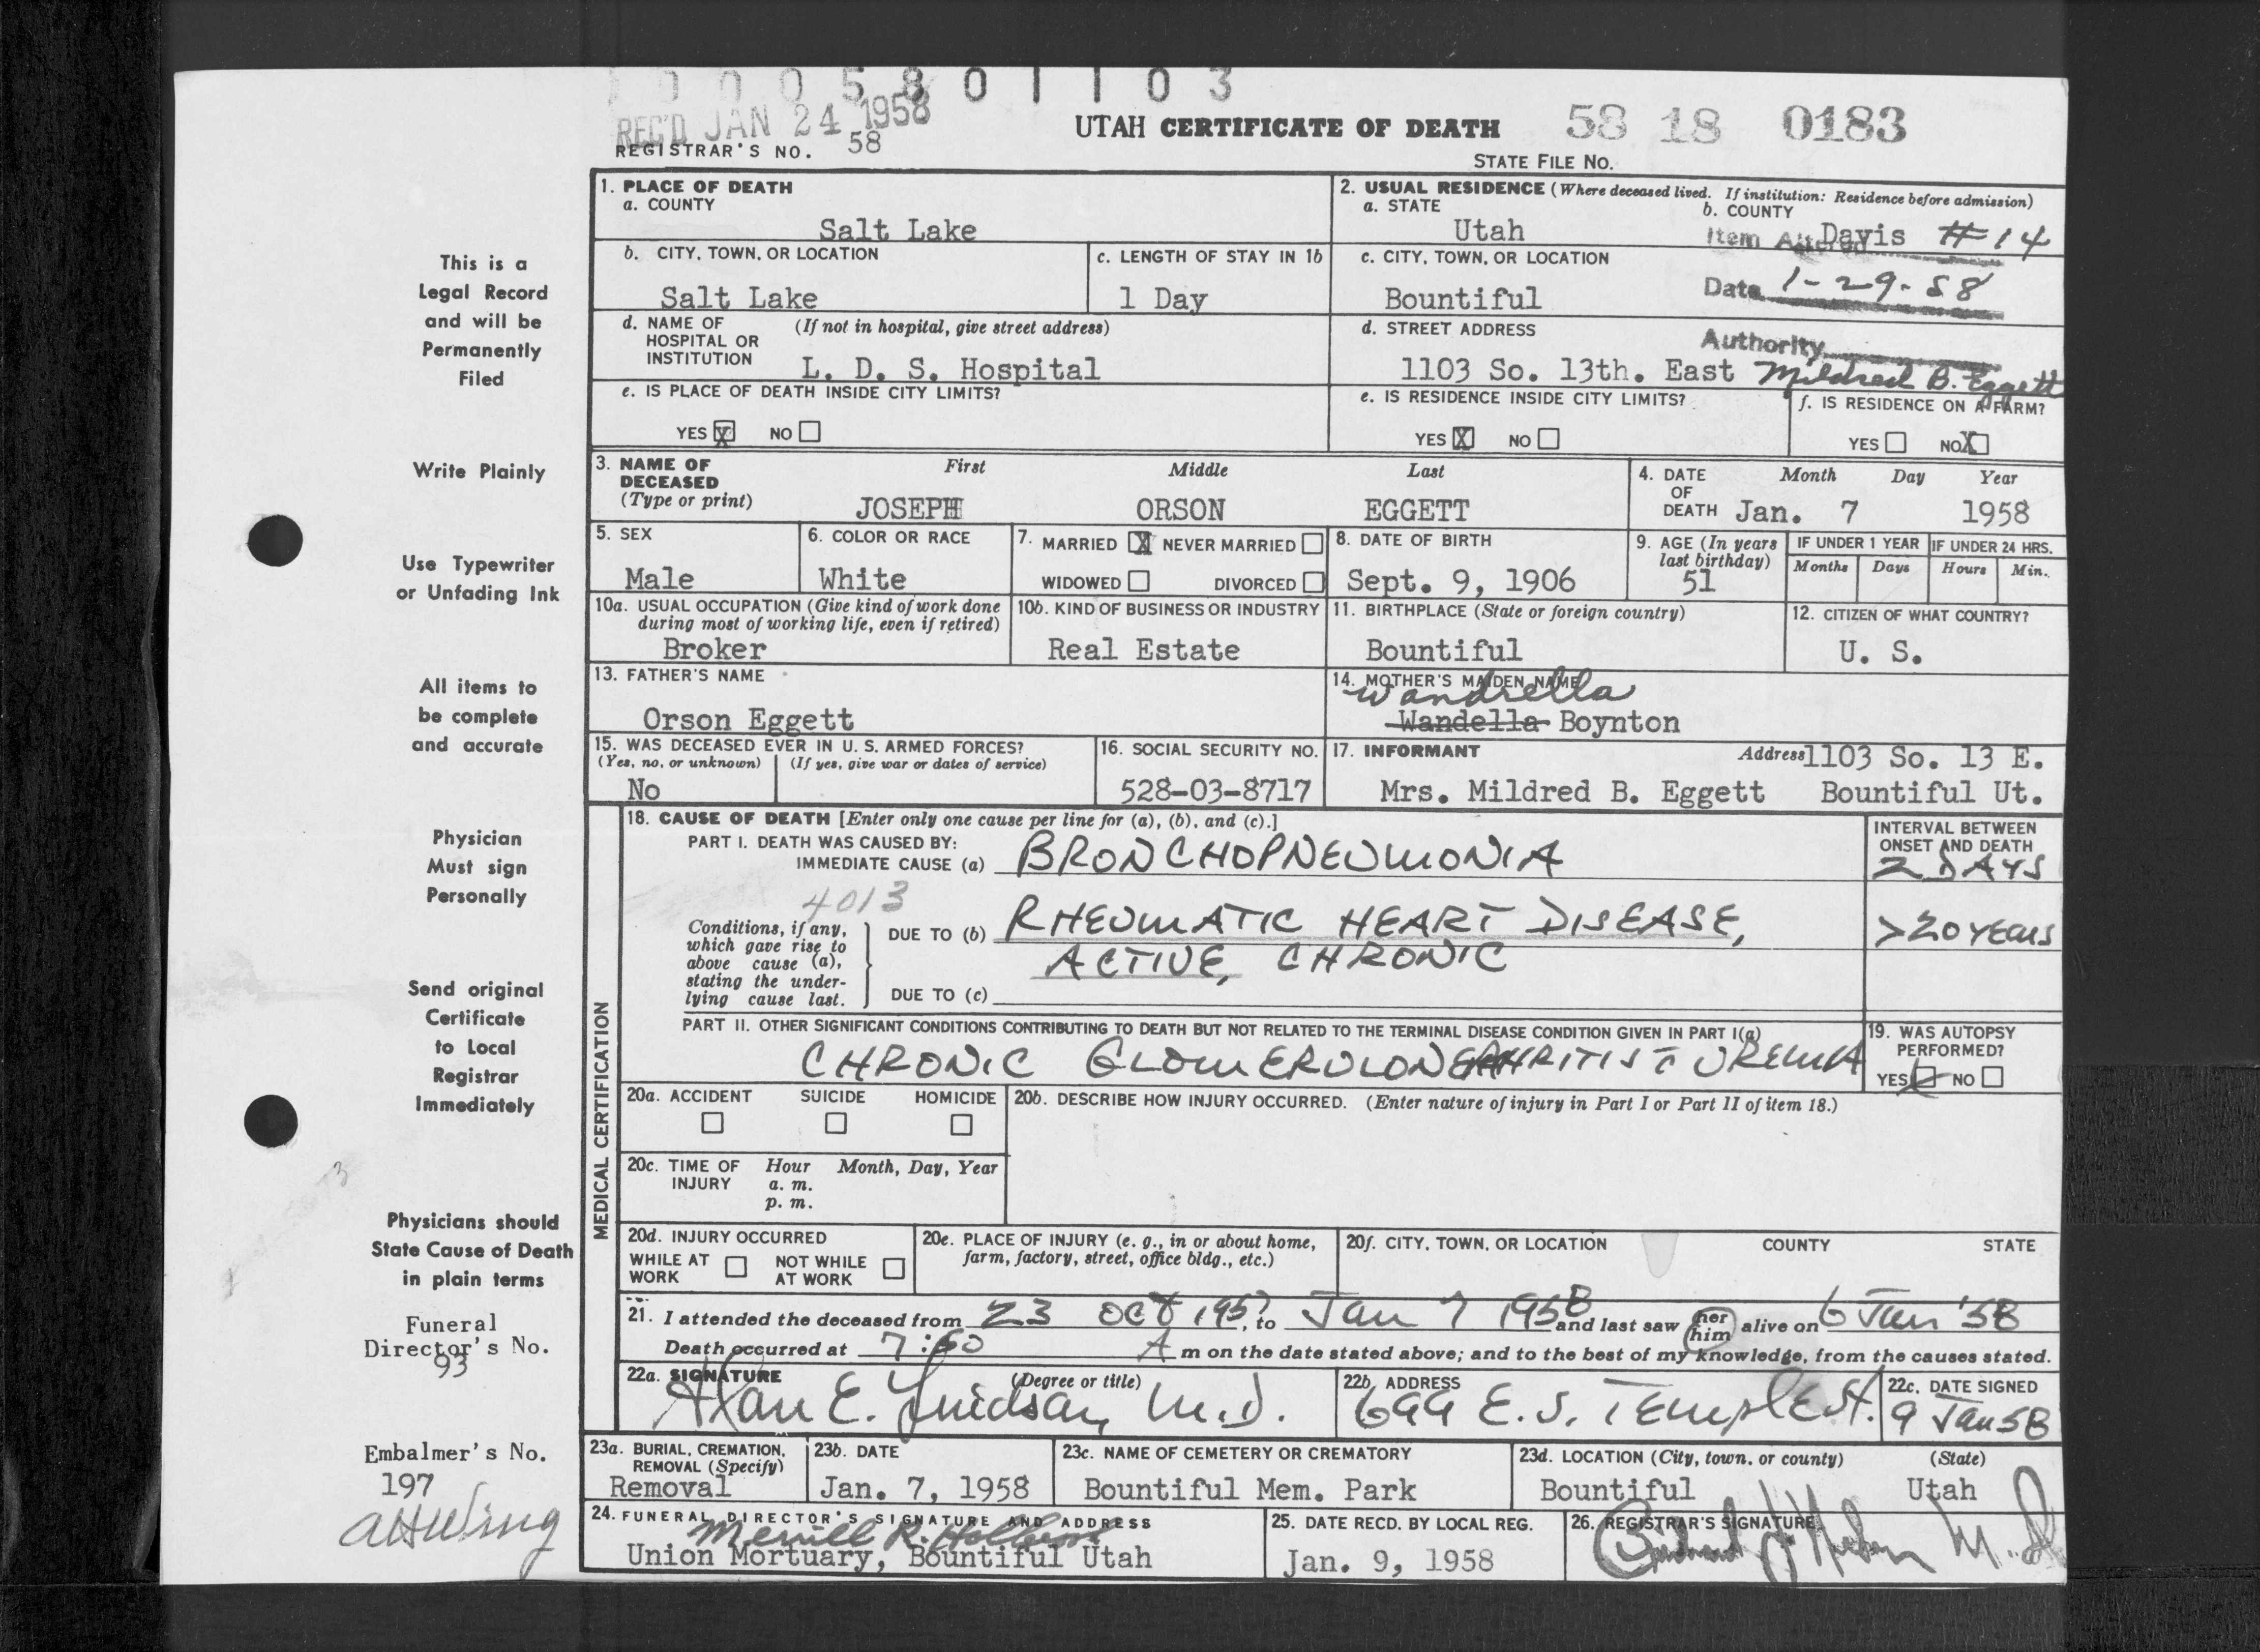 0 0 0 5 8 0 1 1 0 3
REC'D JAN 24 1958
REGISTRAR'S NO. 58
UTAH CERTIFICATE OF DEATH
58 18 0183
STATE FILE NO.
This is a
Legal Record
and will be
Permanently
Filed
Write Plainly
Use Typewriter
or Unfading Ink
All items to
be complete
and accurate
Physician
Must sign
Personally
Send original
Certificate
to Local
Registrar
Immediately
Physicians should
State Cause of Death
in plain terms
Funeral
Director's No.
93
Embalmer's No.
197
1. PLACE OF DEATH
a. COUNTY
Salt Lake
b. CITY, TOWN, OR LOCATION
Salt Lake
c. LENGTH OF STAY IN 1b
1 Day
d. NAME OF HOSPITAL OR INSTITUTION (If not in hospital, give street address)
L. D. S. Hospital
e. IS PLACE OF DEATH INSIDE CITY LIMITS?
YES X NO
2. USUAL RESIDENCE (Where deceased lived. If institution: Residence before admission)
a. STATE
Utah
b. COUNTY
Davis
Item Altered #14
c. CITY, TOWN, OR LOCATION
Bountiful
Date 1-29-58
d. STREET ADDRESS
1103 So. 13th. East
Authority Mildred B. Eggett
e. IS RESIDENCE INSIDE CITY LIMITS?
YES X NO
f. IS RESIDENCE ON A FARM?
YES NO X
3. NAME OF DECEASED (Type or print)
First Middle Last
JOSEPH ORSON EGGETT
4. DATE OF DEATH Month Day Year
Jan. 7 1958
5. SEX
Male
6. COLOR OR RACE
White
7. MARRIED X NEVER MARRIED
WIDOWED DIVORCED
8. DATE OF BIRTH
Sept. 9, 1906
9. AGE (In years last birthday)
51
IF UNDER 1 YEAR
Months Days
IF UNDER 24 HRS.
Hours Min.
10a. USUAL OCCUPATION (Give kind of work done during most of working life, even if retired)
Broker
10b. KIND OF BUSINESS OR INDUSTRY
Real Estate
11. BIRTHPLACE (State or foreign country)
Bountiful
12. CITIZEN OF WHAT COUNTRY?
U. S.
13. FATHER'S NAME
Orson Eggett
14. MOTHER'S MAIDEN NAME
Wandrella
Wandella Boynton
15. WAS DECEASED EVER IN U. S. ARMED FORCES?
(Yes, no, or unknown) (If yes, give war or dates of service)
No
16. SOCIAL SECURITY NO.
528-03-8717
17. INFORMANT Address 1103 So. 13 E.
Mrs. Mildred B. Eggett Bountiful Ut.
MEDICAL CERTIFICATION
18. CAUSE OF DEATH [Enter only one cause per line for (a), (b), and (c).]
INTERVAL BETWEEN ONSET AND DEATH
PART I. DEATH WAS CAUSED BY:
IMMEDIATE CAUSE (a) BRONCHOPNEUMONIA 2 DAYS
4013
Conditions, if any, which gave rise to above cause (a), stating the underlying cause last.
DUE TO (b) RHEUMATIC HEART DISEASE, >20 YEARS
ACTIVE, CHRONIC
DUE TO (c)
PART II. OTHER SIGNIFICANT CONDITIONS CONTRIBUTING TO DEATH BUT NOT RELATED TO THE TERMINAL DISEASE CONDITION GIVEN IN PART I(a)
CHRONIC GLOMERULONEPHRITIS c̄ UREMIA
19. WAS AUTOPSY PERFORMED?
YES NO
20a. ACCIDENT SUICIDE HOMICIDE
20b. DESCRIBE HOW INJURY OCCURRED. (Enter nature of injury in Part I or Part II of item 18.)
20c. TIME OF INJURY Hour Month, Day, Year
a. m.
p. m.
20d. INJURY OCCURRED
WHILE AT WORK NOT WHILE AT WORK
20e. PLACE OF INJURY (e. g., in or about home, farm, factory, street, office bldg., etc.)
20f. CITY, TOWN, OR LOCATION COUNTY STATE
21. I attended the deceased from 23 OCT 1957, to Jan 7 1958 and last saw her him alive on 6 Jan '58
Death occurred at 7:50 A m on the date stated above; and to the best of my knowledge, from the causes stated.
22a. SIGNATURE (Degree or title)
Alan E. Lindsay, M.D.
22b. ADDRESS
699 E. S. Temple St.
22c. DATE SIGNED
9 Jan 58
23a. BURIAL, CREMATION, REMOVAL (Specify)
Removal
23b. DATE
Jan. 7, 1958
23c. NAME OF CEMETERY OR CREMATORY
Bountiful Mem. Park
23d. LOCATION (City, town, or county) (State)
Bountiful Utah
24. FUNERAL DIRECTOR'S SIGNATURE AND ADDRESS
Merrill R. Holbrook
Union Mortuary, Bountiful Utah
25. DATE RECD. BY LOCAL REG.
Jan. 9, 1958
26. REGISTRAR'S SIGNATURE